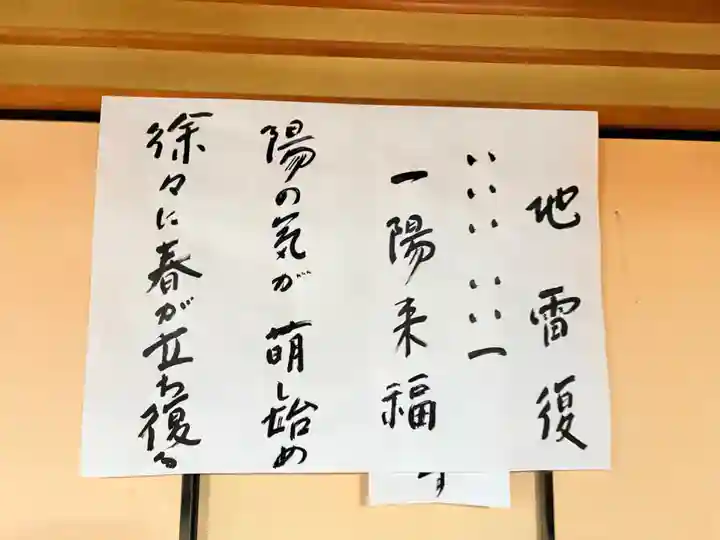 地雷復
⚋⚋⚋⚋⚋⚊
一陽来福
陽の気が萌し始め
徐々に春が立ち復る
す